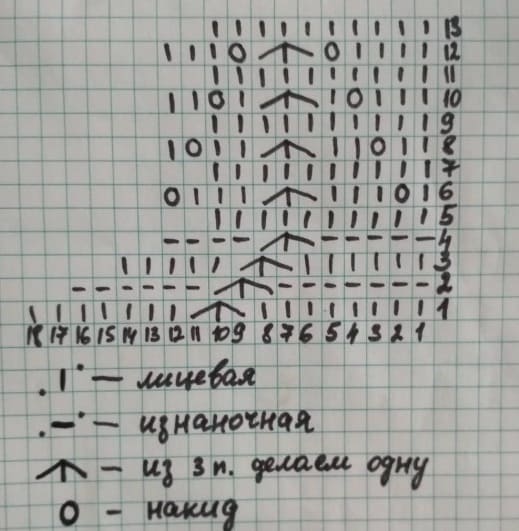 13
12
11
10
9
8
7
6
5
4
3
2
1
18 17 16 15 14 13 12 11 10 9 8 7 6 5 4 3 2 1
| — лицевая
- — изнаночная
– из 3 п. делаем одну
O – накид